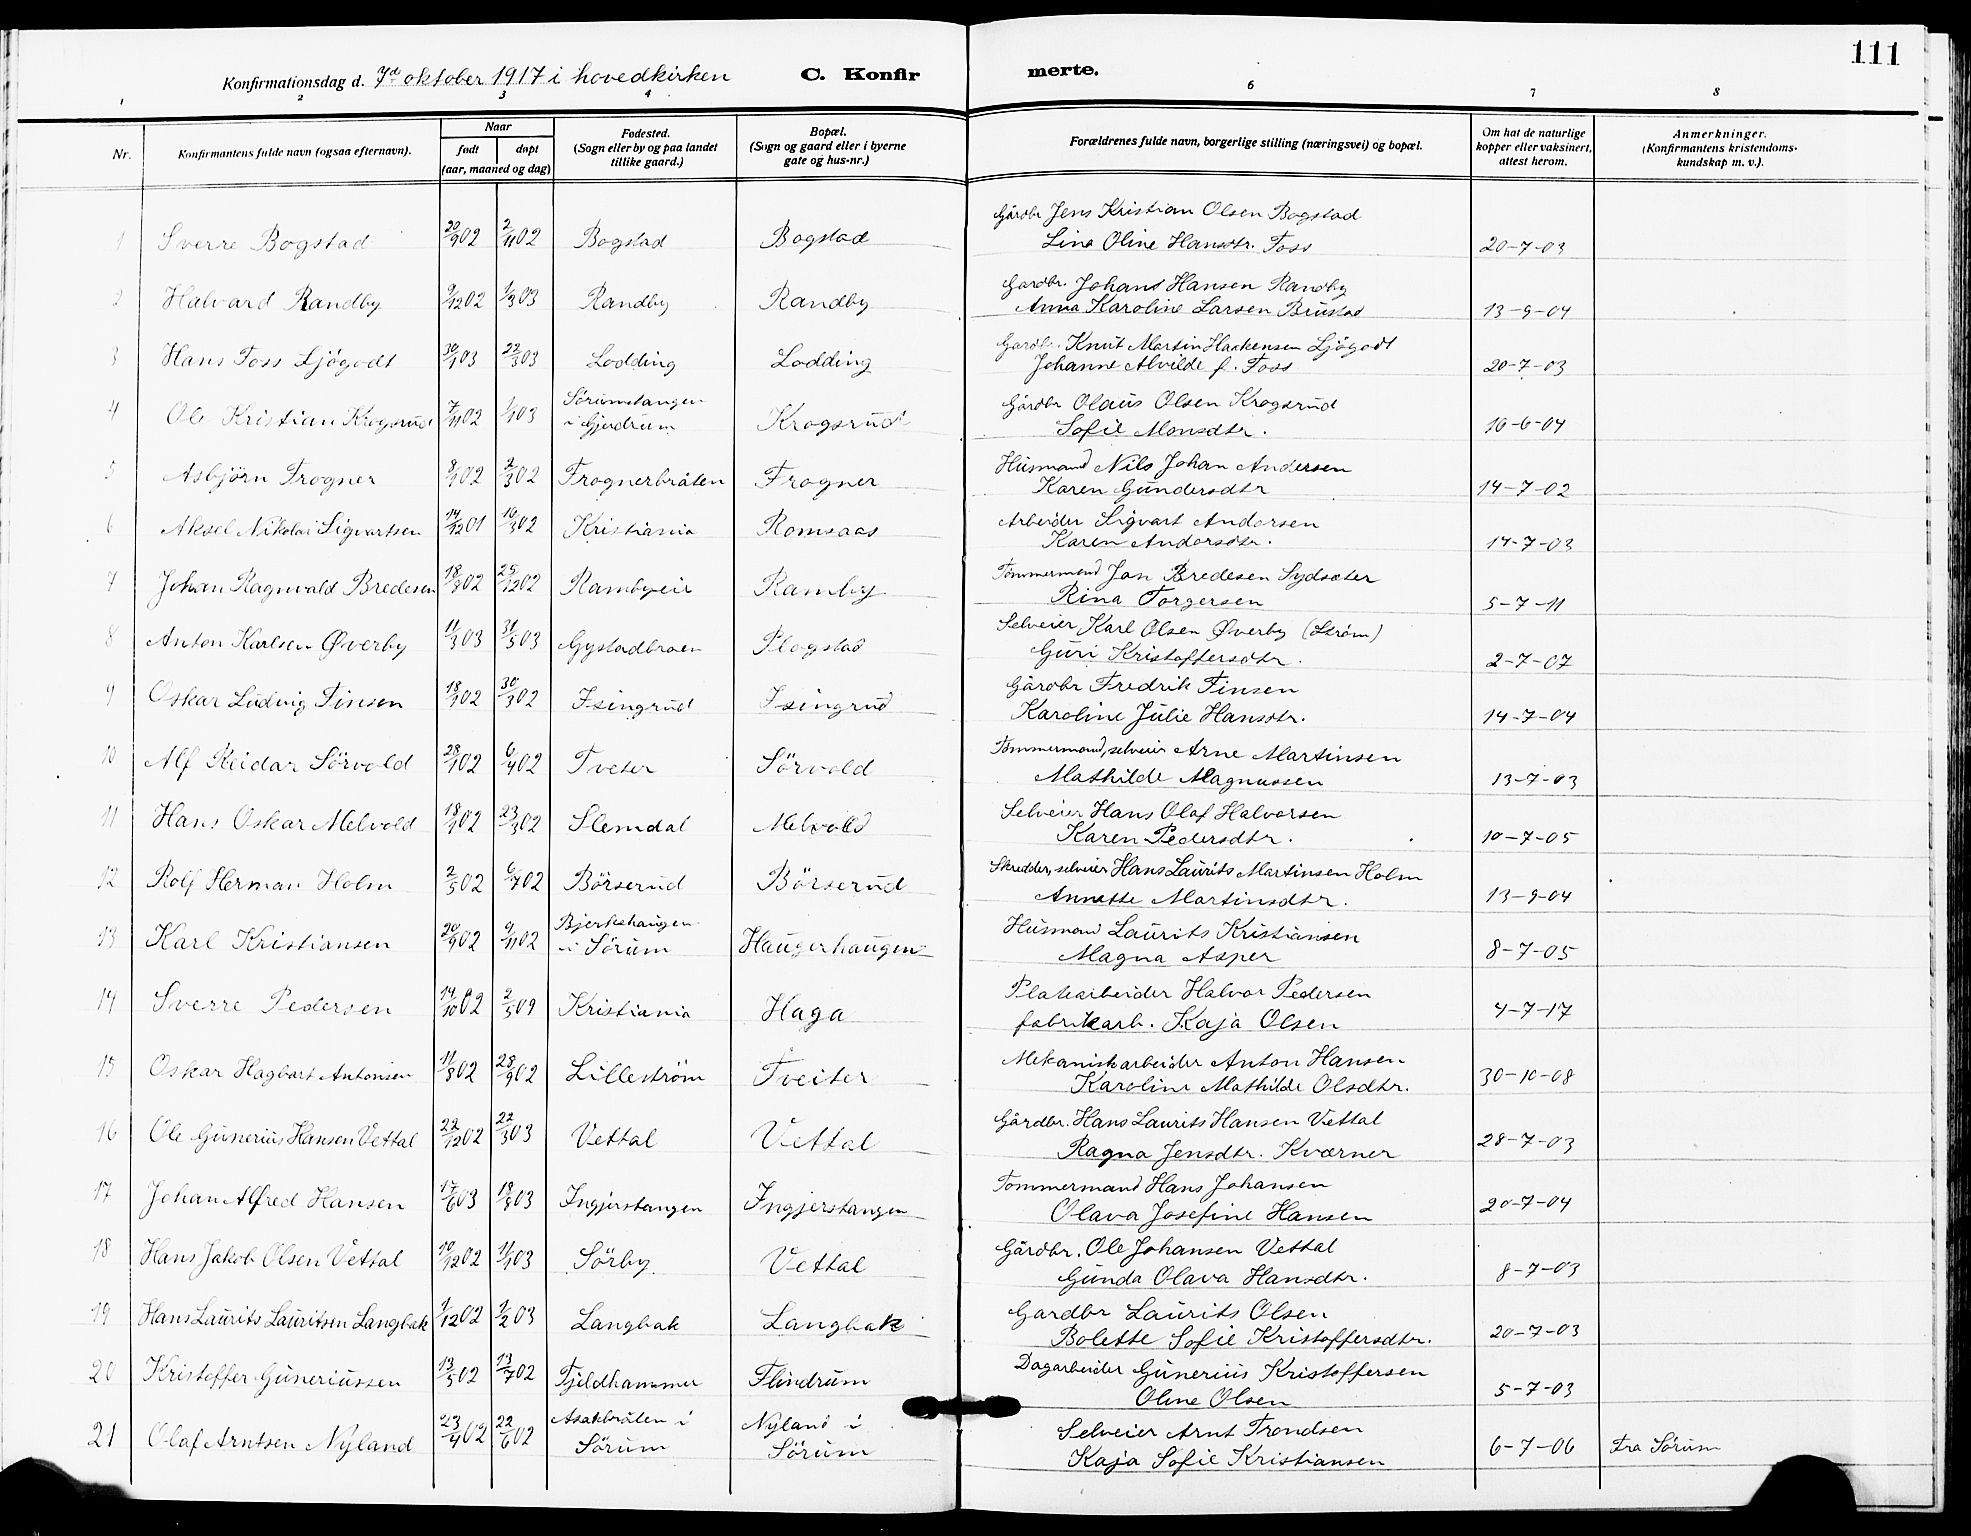 111
Konfirmationsdag d. 7de oktober 1917 i hovedkirken C. Konfirmerte.
1 2 3 4 6 7 8
Nr. Konfirmantens fulde navn (ogsaa efternavn). Naar født døpt (aar, maaned og dag) Fødested. (Sogn eller by og paa landet tillike gaard.) Bopæl. (Sogn og gaard eller i byerne gate og hus-nr.) Forældrenes fulde navn, borgerlige stilling (næringsvei) og bopæl. Om hat de naturlige kopper eller vaksinert, attest herom. Anmerkninger. (Konfirmantens kristendomskundskap m. v.).
1 Sverre Bogstad 20/9 02 2/11 02 Bogstad Bogstad Gårdbr Jens Kristian Olsen Bogstad
Lina Oline Hansdtr. Foss 20-7-03
2 Halvard Randby 9/12 02 1/3 03 Randby Randby Gardbr. Johans Hansen Randby
Anna Karoline Larsen Brustad 13-9-04
3 Hans Foss Ljögodt 30/1 03 22/3 03 Lodding Lodding Gardbr. Knut Martin Haakensen Ljögodt
Johanne Alvilde f. Foss 20-7-03
4 Ole Kristian Krogsrud 7/11 02 1/1 03 Sörumstangen i Gjerdrum Krogsrud Gårdbr Olaus Olsen Krogsrud
Sofie Monsdtr. 16-6-04
5 Asbjörn Frogner 8/1 02 2/3 02 Frognerbråten Frogner Husmand Nils Johan Andersen
Karen Gundersdtr 14-7-02
6 Aksel Nikolai Sigvartsen 14/12 01 16/3 02 Kristiania Romsaas Arbeider Sigvart Andersen
Karen Andersdtr. 17-7-03
7 Johan Ragnvald Bredesen 18/8 02 25/12 02 Rambyeie Ramby Tömmermand Jon Bredesen Sydsæter
Rina Torgersen 5-7-11
8 Anton Karlsen Øverby 11/3 03 31/5 03 Gystadbraen Plogstad Selveier Karl Olsen Øverby (Ström)
Guri Kristoffersdtr. 2-7-07
9 Oskar Ludvig Finsen 18/1 02 30/3 02 Isingrud Isingrud Gårdbr Fredrik Finsen
Karoline Julie Hansdtr. 14-7-04
10 Alf Reidar Sörvold 28/1 02 6/4 02 Tveter Sörvold Tömmermand, selveier Arne Martinsen
Mathilde Magnussen 13-7-03
11 Hans Oskar Melvold 18/1 02 23/3 02 Slemdal Melvold Selveier Hans Olaf Halvorsen
Karen Pedersdtr. 10-7-05
12 Rolf Herman Holm 2/5 02 6/7 02 Börserud Börserud Skredder, selveier Hans Laurits Martinsen Holm
Annette Martinsdtr. 13-9-04
13 Karl Kristiansen 20/9 02 9/11 02 Bjerkehaugen i Sörum Haugerhaugen Husmand Laurits Kristiansen
Magna Asper 8-7-05
14 Sverre Pedersen 14/10 02 2/5 09 Kristiania Haga Platearbeider Halvor Pedersen
fabrikarb. Kaja Olsen 4-7-17
15 Oskar Hagbart Antonsen 11/8 02 28/9 02 Lilleström Tveiter Mekaniskarbeider Anton Hansen
Karoline Mathilde Olsdtr. 30-10-08
16 Ole Gunerius Hansen Vettal 22/12 02 22/3 03 Vettal Vettal Gårdbr. Hans Laurits Hansen Vettal
Ragna Jensdtr. Kværner 28-7-03
17 Johan Alfred Hansen 17/6 03 18/9 03 Ingjerstangen Ingjerstangen Tømmermand Hans Johansen
Olava Josefine Hansen 20-7-04
18 Hans Jakob Olsen Vettal 10/12 02 11/1 03 Sörby Vettal Gårdbr. Ole Johansen Vettal
Gunda Olava Hansdtr. 8-7-03
19 Hans Laurits Lauritsen Langbak 7/12 02 1/2 03 Langbak Langbak Gardbr Laurits Olsen
Bolette Sofie Kristoffersdtr. 20-7-03
20 Kristoffer Guneriussen 13/5 02 13/7 02 Fjeldhammer Flindrum Dagarbeider Gunerius Kristoffersen
Oline Olsen 5-7-03
21 Olaf Arntsen Nyland 23/4 02 22/6 02 Asakbråten i Sörum Nyland i Sörum Selveier Arnt Trondsen
Kaja Sofie Kristiansen 6-7-06 Fra Sörum